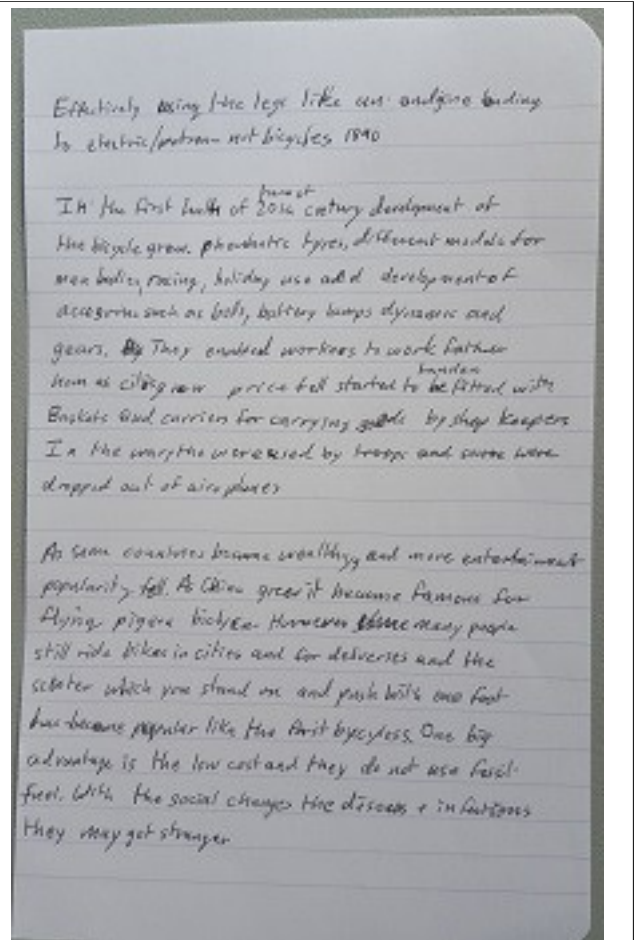 Effectively using the legs like an
to electric/ not bicycles 1890
In the first half of 20th century development of
the bicycle grew. tyres, different models for
men racing, holiday use add development of
such as bells, battery lamps and
gears. They enabled workers to work father
as price fell started to be fitted with
Baskets and carriers for carrying goods by shop keepers
In the were used by troops and some were
dropped out of airoplanes
As some countries became wealthyy and more entertainment
popularity fell. As China it became famous for
flying pigeon However many people
still ride bikes in cities and for and the
which you stand on and push with one foot
has become popular like the One big
advantage is the low cost and they do not use
fuel. With the social changes the +
they may get stronger